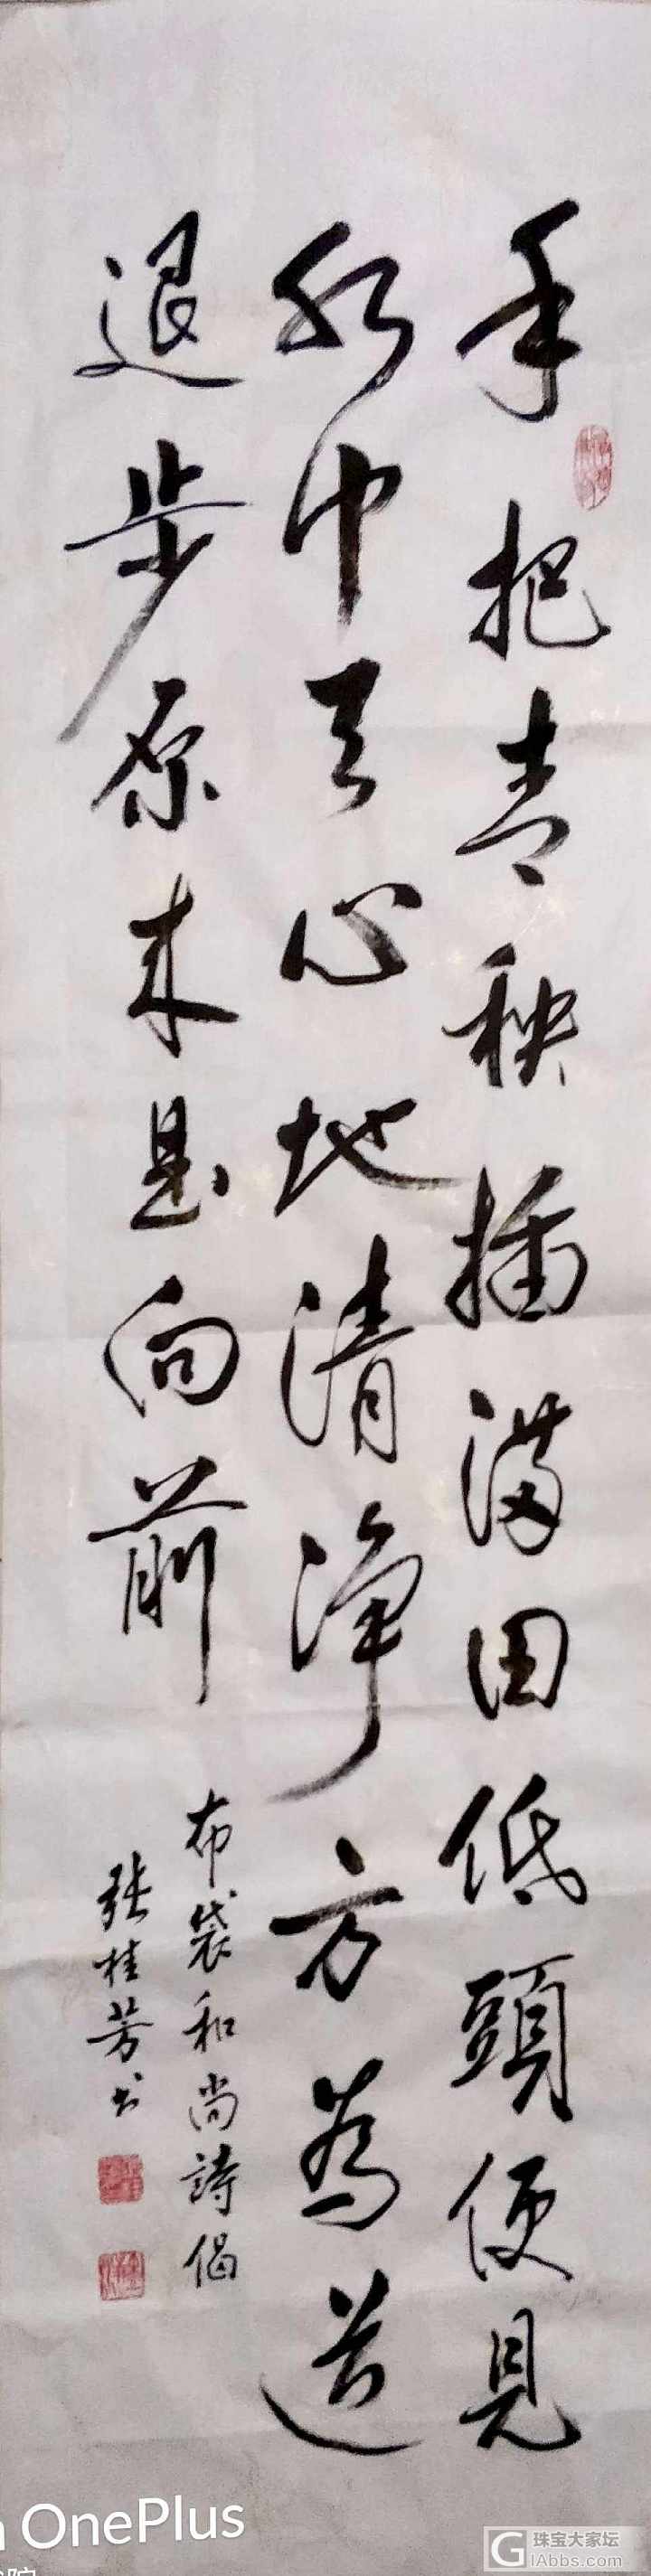 手把青秧插满田低頭便見
水中天心地清净方為道
退步原来是向前
布袋和尚詩偈
张桂芳书
OnePlus
院
珠宝大家坛
GIAbbs.com